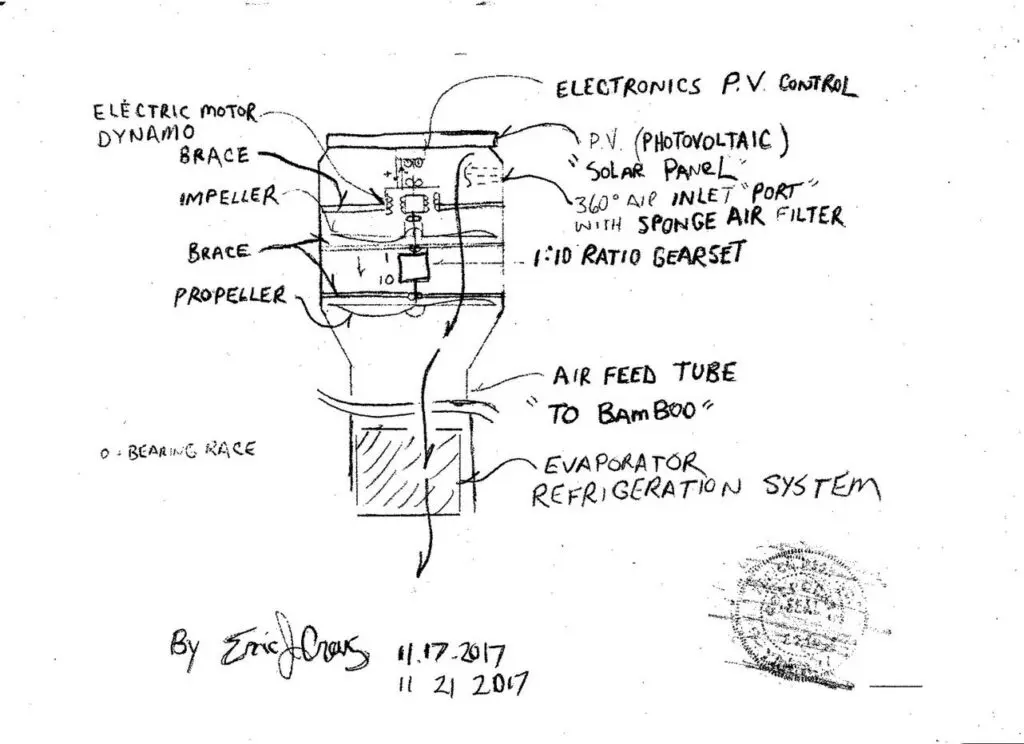 ELECTRONICS P.V. CONTROL
ELECTRIC MOTOR
DYNAMO
BRACE
P.V. (PHOTOVOLTAIC)
"SOLAR PANEL"
IMPELLER
360° AIR INLET "PORT"
WITH SPONGE AIR FILTER
BRACE
1:10 RATIO GEARSET
1
10
PROPELLER
AIR FEED TUBE
"TO BAMBOO"
O - BEARING RACE
EVAPORATOR
REFRIGERATION SYSTEM
By Eric J
11.17-2017
11 21 2017